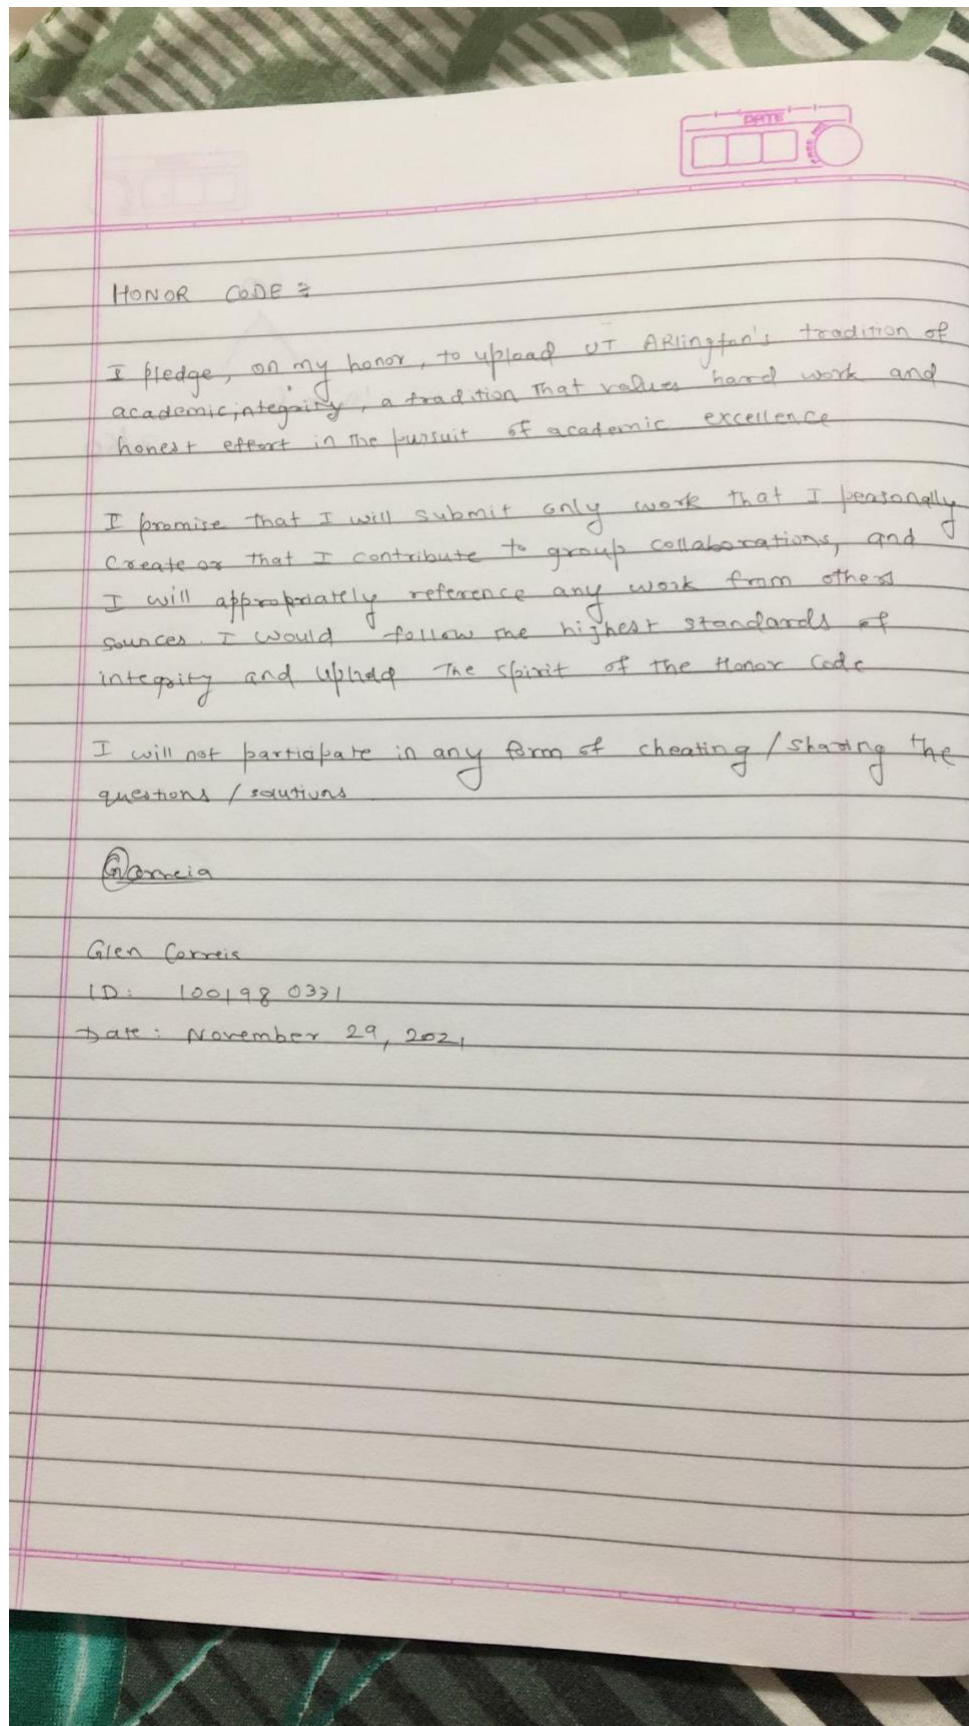 DATE
HONOR CODE :
I pledge, on my honor, to upload UT ARlington's tradition of
academic integrity, a tradition that values hard work and
honest effort in the pursuit of academic excellence
I promise that I will submit only work that I personally
create or that I contribute to group collaborations, and
I will appropriately reference any work from others
sources. I would follow the highest standards of
integrity and uphad the spirit of the Honor Code
I will not participate in any form of cheating / sharing the
questions / solutions
GCorreia
Glen Correia
ID: 1001980331
Date: November 29, 2021